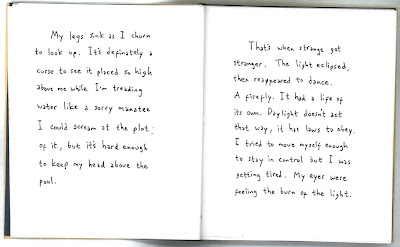 My legs sink as I churn
to look up. It's definately a
curse to see it placed so high
above me while I'm treading
water like a sorry manatee
I could scream at the plot:
of it, but it's hard enough
to keep my head above the
pool.
That's when strange got
stranger. The light eclipsed,
then reappeared to dance.
A firefly. It had a life of
its own. Daylight doesn't act
that way, it has laws to obey.
I tried to move myself enough
to stay in control but I was
getting tired. My eyes were
feeling the burn of the light.